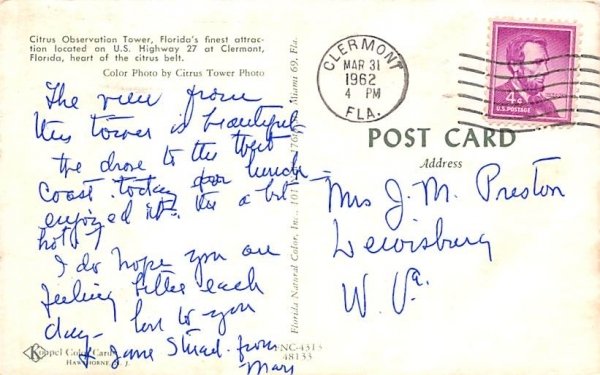 Citrus Observation Tower, Florida's finest attrac-
tion located on U.S. Highway 27 at Clermont,
Florida, heart of the citrus belt.
Color Photo by Citrus Tower Photo
The view from
this tower is beautiful
We drove to the West
Coast today for lunch
enjoyed it. It's a bit
hot.
I do hope you are
feeling better each
day - love to you
& Jane Stuart from
Mary
Koppel Color Cards
Hawthorne, N. J.
FNC-4313
48133
Florida Natural Color, Inc., 101 Miami 69, Fla.
CLERMONT
MAR 31
1962
4 PM
FLA.
4¢
U.S. POSTAGE
POST CARD
Address
Mrs J. M. Preston
Lewisburg
W. Va.